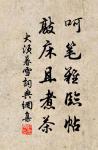 呵笔难临帖
敲床且煮茶
大溪春雪词典网集